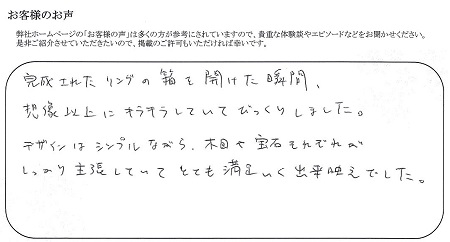 お客様のお声
弊社ホームページの「お客様の声」は多くの方が参考にされていますので、貴重な体験談やエピソードなどをお聞かせください。
是非ご紹介させていただきたいので、掲載のご許可もいただければ幸いです。
完成されたリングの箱を開けた瞬間、
想像以上にキラキラしていてびっくりしました。
デザインはシンプルながら、木目や宝石それぞれが
しっかり主張していてとても満足いく出来映えでした。